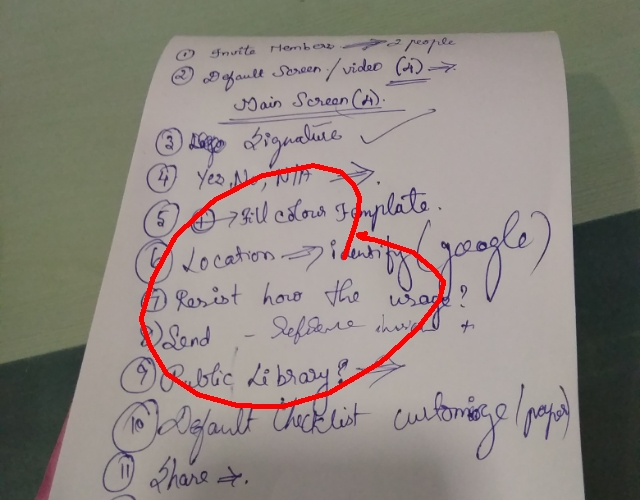 ① Invite Members → 2 people
② Default Screen / video (4) →
Main Screen (4).
③ Signature ✓
④ Yes, No, N/A →.
⑤ + → Fill colour Template.
⑥ Location → identify (google)
⑦ Resist how the usage?
⑧ Send - +
⑨ Public Library? →
⑩ Default Checklist customize (paper)
⑪ Share →.